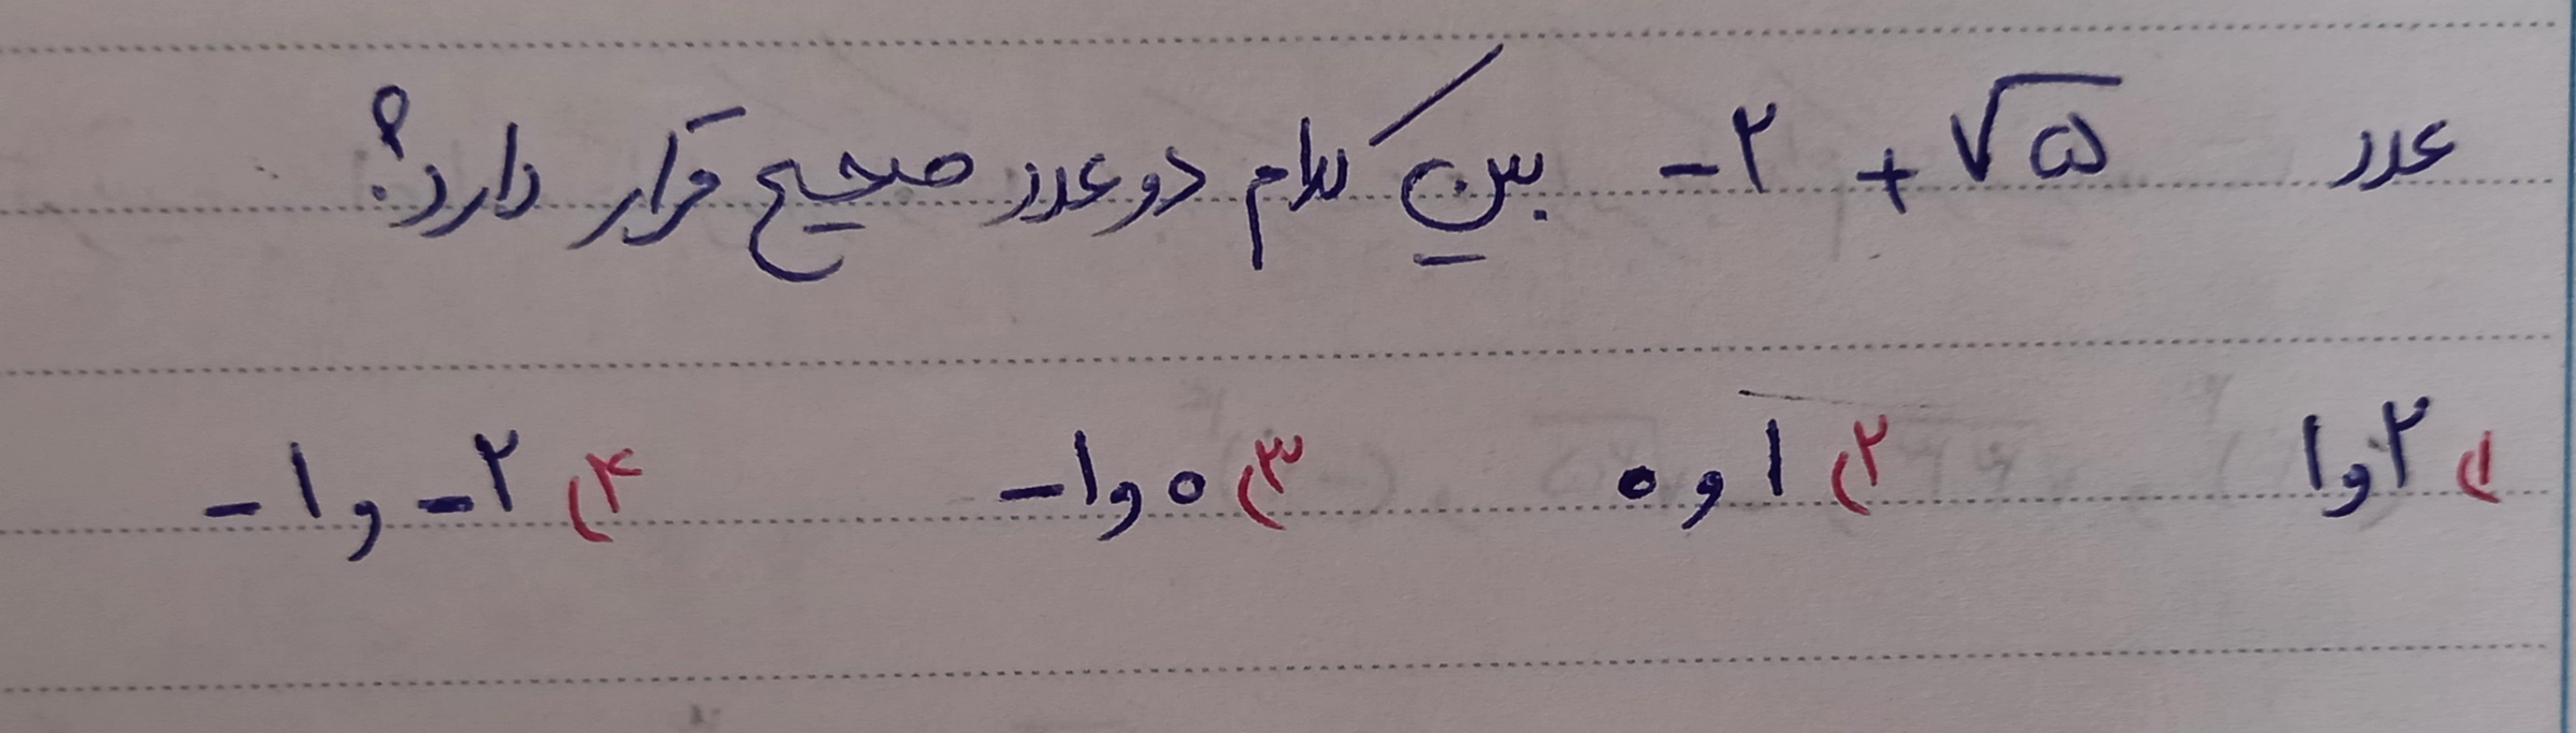 عدد -۲ + √۵ بین کدام دو عدد صحیح قرار دارد؟
۱) ۲ و ۱ ۲) ۱ و ۰ ۳) ۰ و -۱ ۴) -۲ و -۱